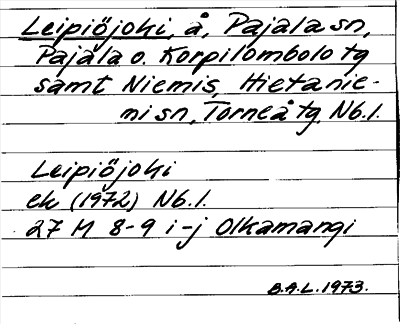 Leipiöjoki, å, Pajala sn,
Pajala o. Korpilombolo tg
samt Niemis, Hietanie-
mi sn, Torneå tg, Nb.l.
Leipiöjoki
ek (1972) Nb.l.
27 M 8-9 i-j Olkamangi
B.A.L. 1973.